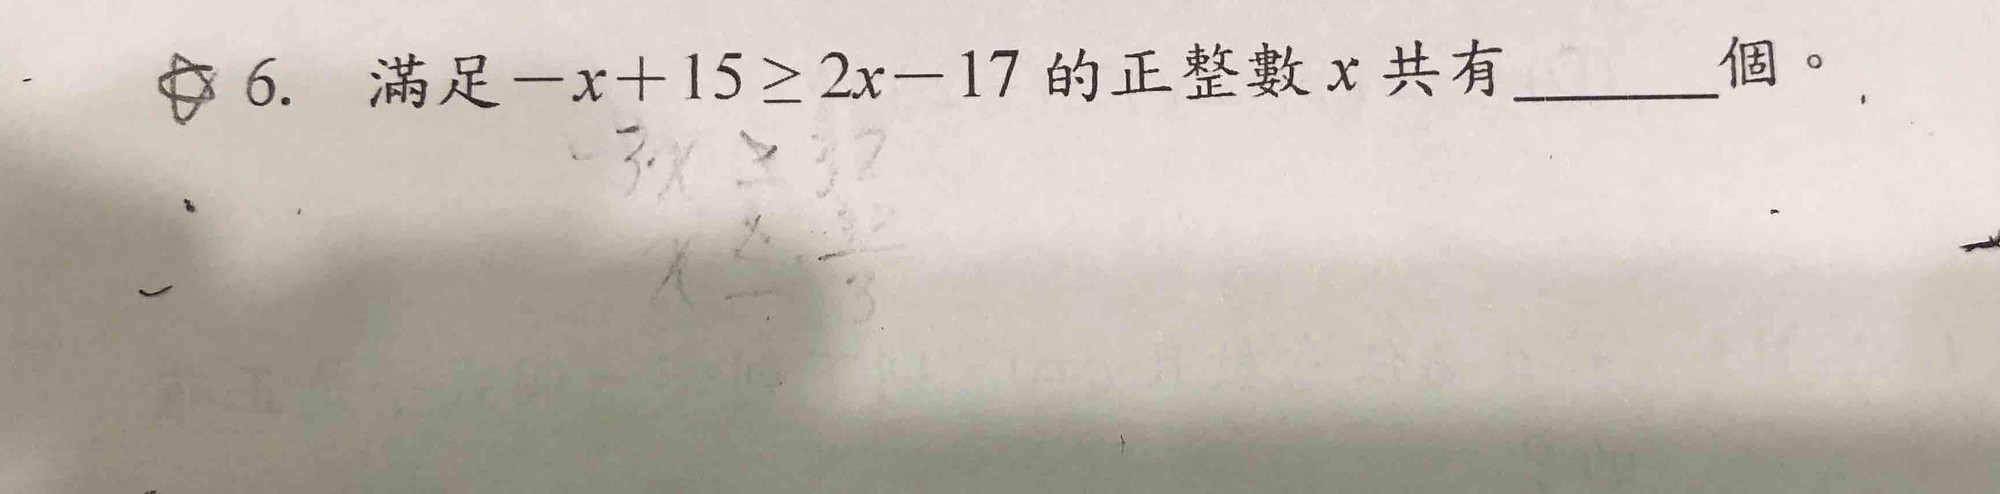 6. 滿足 −x＋15≥2x−17 的正整數 x 共有______個。
-3x ≥ 32
x ≥ 32/3